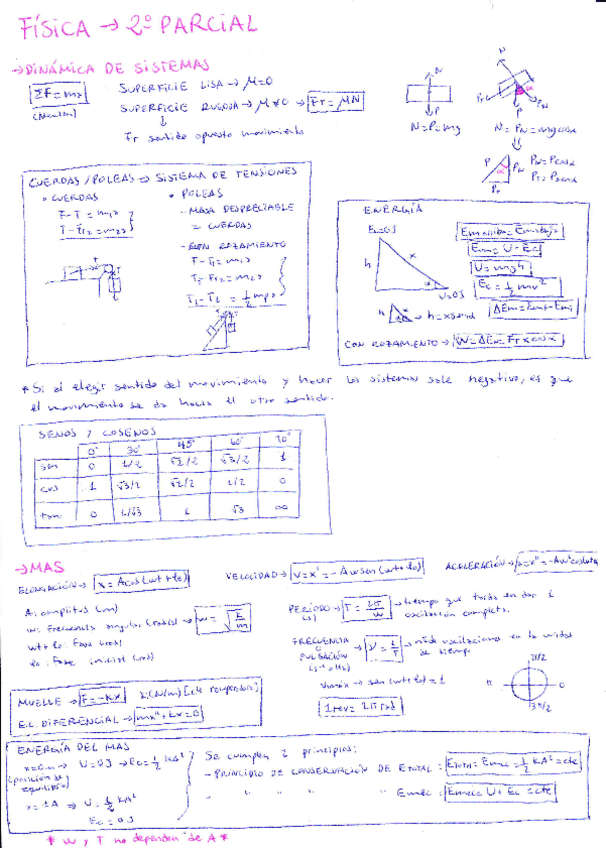 FÍSICA → 2º PARCIAL
→ DINÁMICA DE SISTEMAS
ΣF = ma
(Newton)
SUPERFICIE LISA → μ=0
SUPERFICIE RUGOSA → μ≠0 → Fr = μN
↓
Fr sentido opuesto movimiento
N
P
N=P=mg
N
Pt
PN
P
α
N = PN = mg cosα
P
α
PN
PN = P cosα
Pt = P senα
CUERDAS / POLEAS ⇒ SISTEMA DE TENSIONES
• CUERDAS
F - T = m1a
T - Fr2 = m2a
• POLEAS
- MASA DESPRECIABLE
= CUERDAS
- CON ROZAMIENTO
ENERGÍA
Ec=0J
h
x
U=0J
Em = U + Ec
U = mgh
Ec = 1/2 mv²
h → h = x senα
CON ROZAMIENTO → W = ΔEm = Fr x cosα
* Si al elegir sentido del movimiento y hacer los sistemas sale negativo, es que
el movimiento se da hacia el otro sentido.
SENOS Y COSENOS
0° 30° 45° 60° 90°
sen 0 1/2 √2/2 √3/2 1
cos 1 √3/2 √2/2 1/2 0
tan 0 1/√3 1 √3 ∞
→ MAS
ELONGACIÓN → x = A cos (wt + φo)
VELOCIDAD → v = x' = -Aw sen (wt + φo)
ACELERACIÓN →
A: amplitud (m)
w: Frecuencia angular (rad/s) → w = √k/m
wt + φo: Fase (rad)
φo: Fase inicial (rad)
PERÍODO → T = 2π/w → tiempo que tarda en dar 1
(s)
oscilación completa.
FRECUENCIA
O
PULSACIÓN
ν = 1/T → nº de oscilaciones en la unidad
de tiempo
Vmáx → sen (wt + φo) = 1
1 rev = 2π rad
π/2
π
0
3π/2
MUELLE → F = -kx
EC. DIFERENCIAL → mx'' + kx = 0
ENERGÍA DEL MAS
x = 0m → U = 0J → Ec = 1/2 kA²
(posición de
equilibrio)
x = ±A ⇒ U = 1/2 kA²
Ec = 0J
Se cumplen 2 principios:
- PRINCIPIO DE CONSERVACIÓN DE ETOTAL: ETOTAL = Emec = 1/2 kA² = cte
" " " Emec: Emec = U + Ec = cte
* W y T no dependen de A *